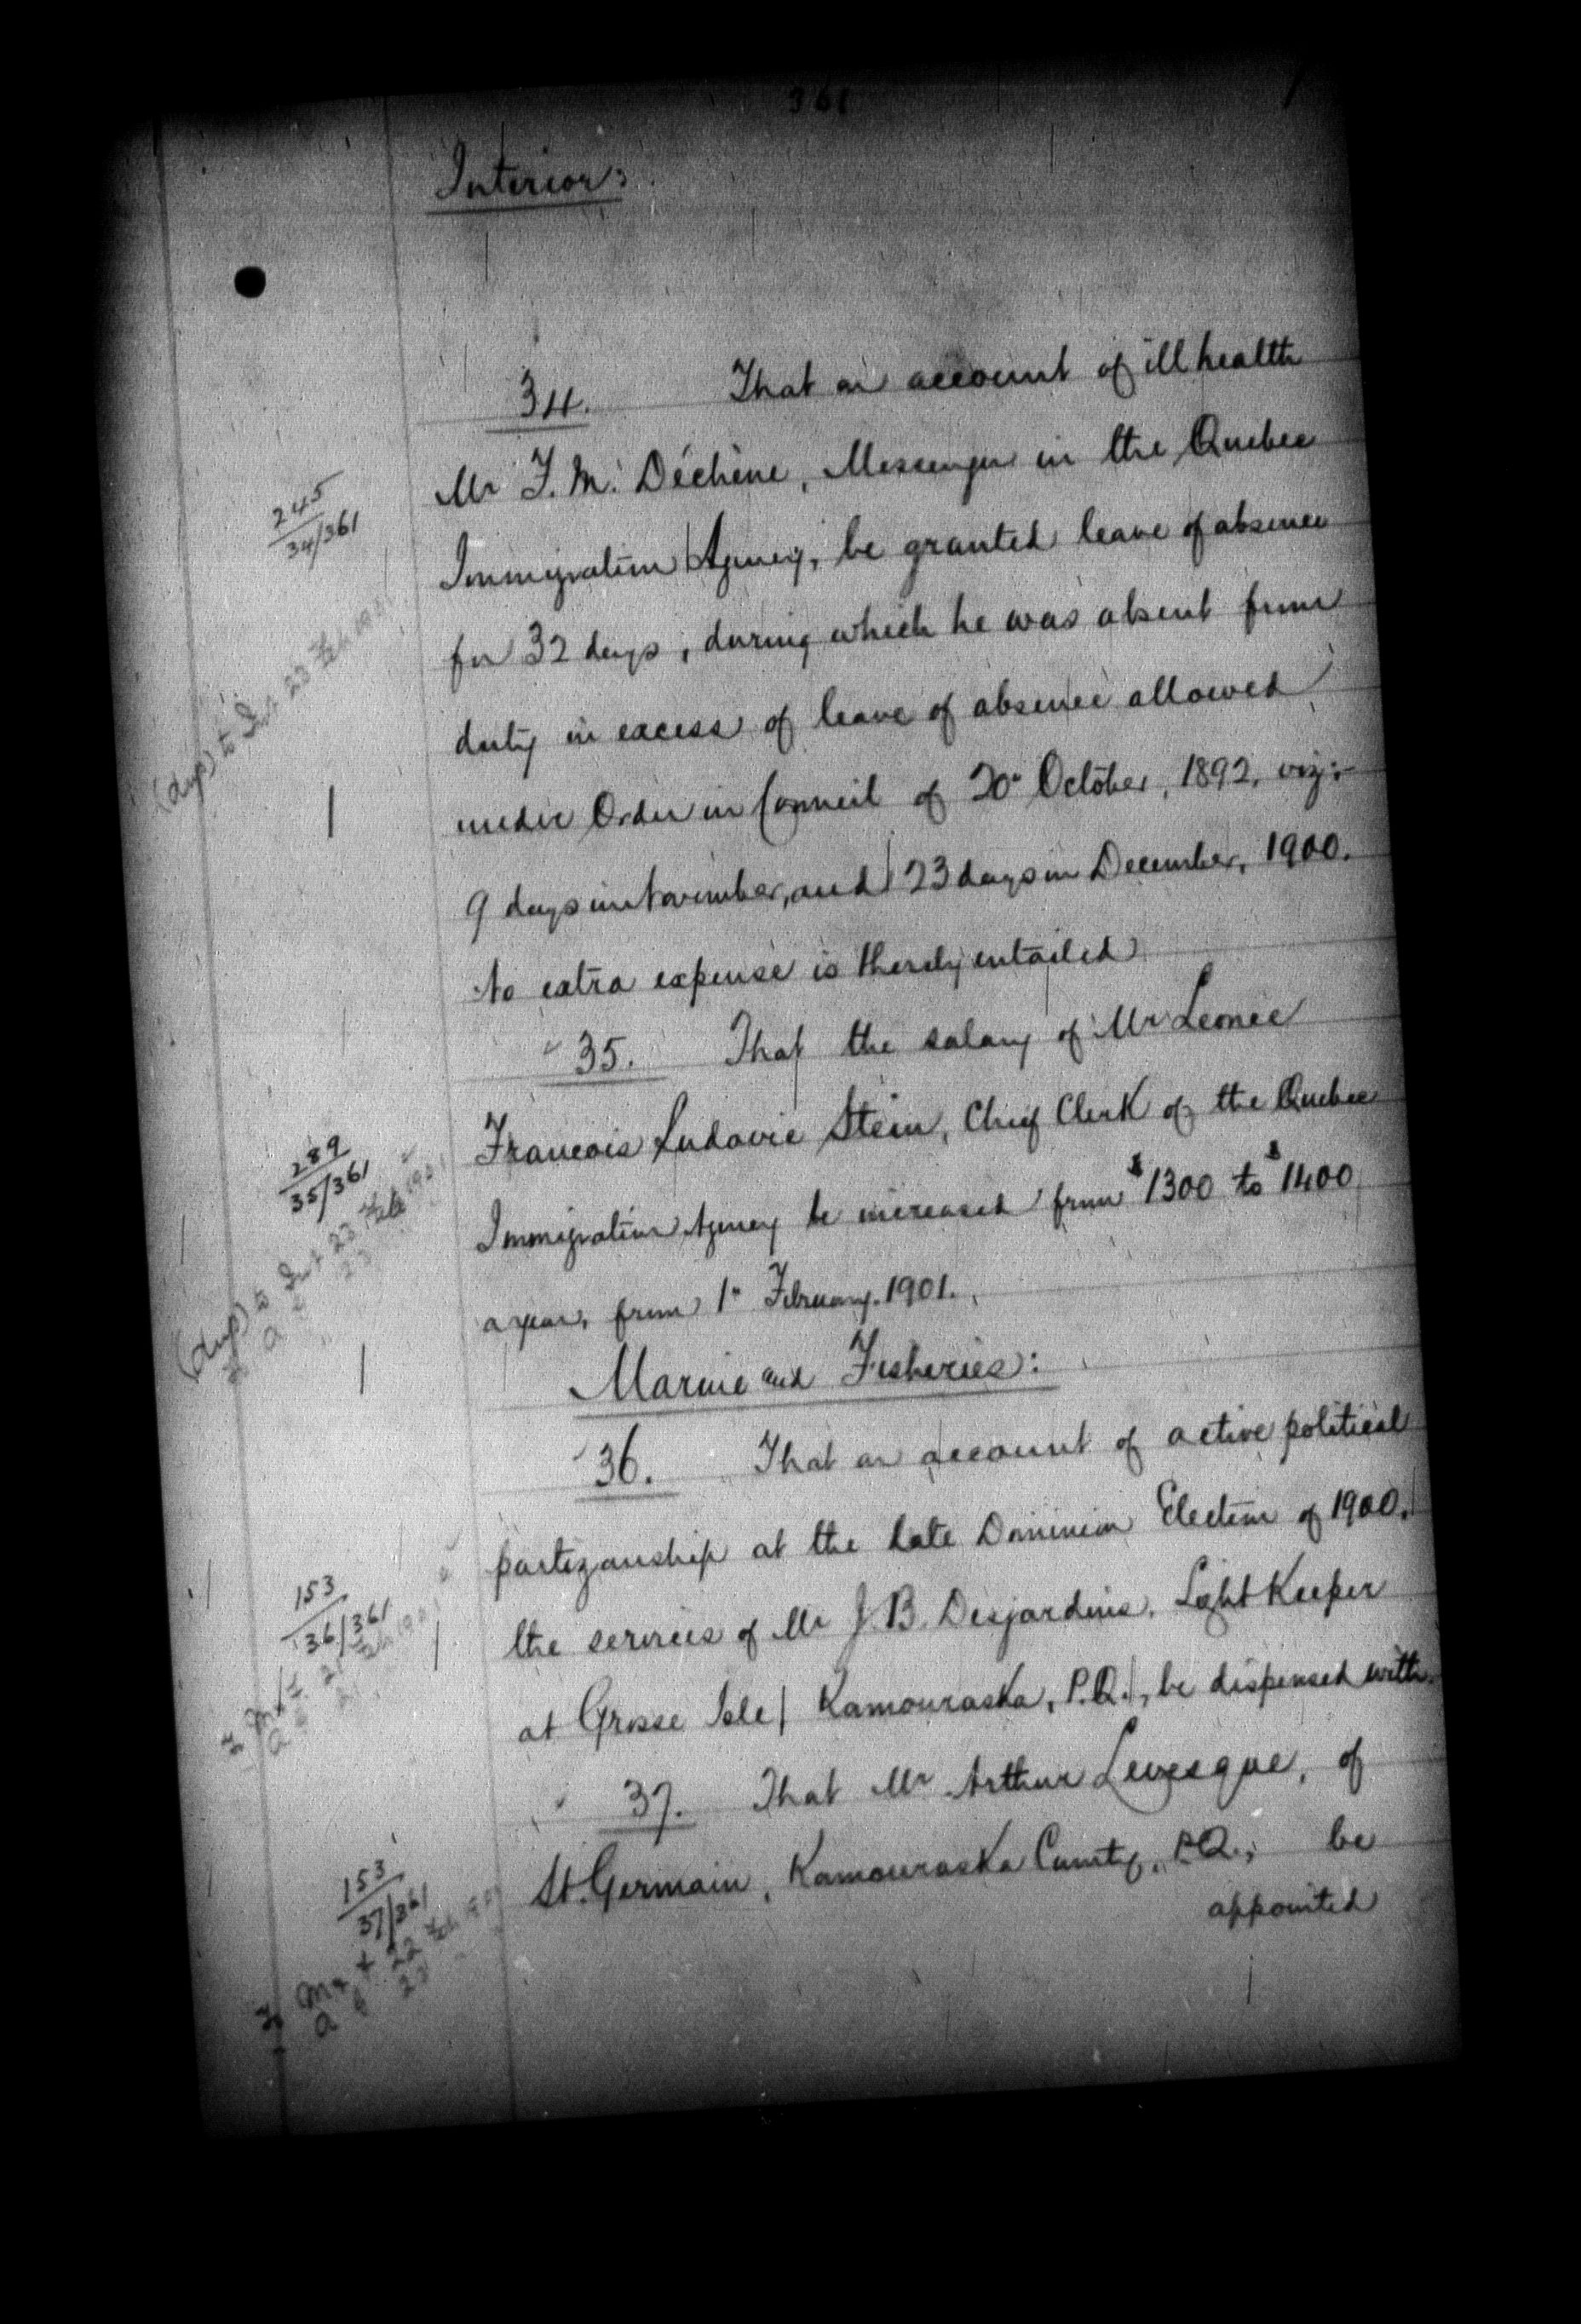 361
Interior:
34. That on account of ill health
245
34/361
Mr F. M. Déchène, Messenger in the Quebec
Immigration Agency, be granted leave of absence
for 32 days, during which he was absent from
duty in excess of leave of absence allowed
(dup) to Int 23 Feb 1901
under Order in Council of 20" October, 1892, viz:-
9 days in November, and 23 days in December, 1900.
No extra expense is thereby entailed
35. That the salary of Mr Leonce
Francois Ludovic Stein, Chief Clerk of the Quebec
289
35/361
Immigration Agency be increased from $1300 to $1400
(dup) to Int 23 Feb 1901
a year, from 1" February. 1901.
Marine and Fisheries:
36. That on account of active political
partizanship at the late Dominion Election of 1900.
153
36/361
the services of Mr J. B. Desjardins, Light Keeper
at Grosse Isle Kamouraska, P.Q., be dispensed with.
37. That Mr Arthur Levesque, of
153
37/361
St. Germain, Kamouraska County, P.Q., be
appointed